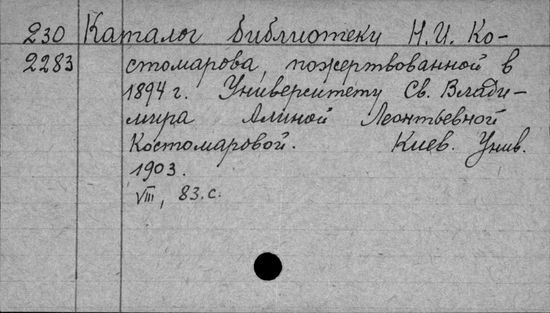 230 Каталог библиотеки Н.И. Ко-
2283 стомарова, пожертвованной в
1894 г. Университету Св. Влади-
мира Алиной Леонтьевной
Костомаровой. Киев. Унив.
1903.
VIII, 83 с.